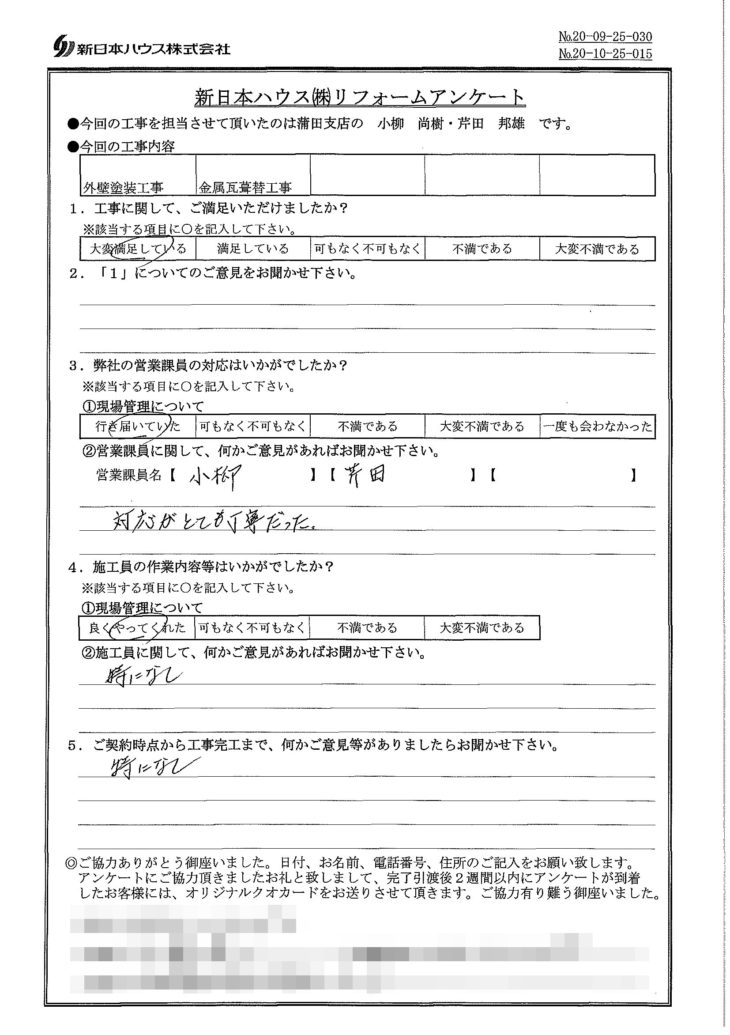 新日本ハウス株式会社
№20-09-25-030
№20-10-25-015
新日本ハウス㈱リフォームアンケート
●今回の工事を担当させて頂いたのは蒲田支店の 小柳 尚樹・芹田 邦雄 です。
●今回の工事内容
外壁塗装工事 金属瓦葺替工事
1．工事に関して、ご満足いただけましたか？
※該当する項目に〇を記入して下さい。
大変満足している 満足している 可もなく不可もなく 不満である 大変不満である
2．「1」についてのご意見をお聞かせ下さい。
3．弊社の営業課員の対応はいかがでしたか？
※該当する項目に〇を記入して下さい。
①現場管理について
行き届いていた 可もなく不可もなく 不満である 大変不満である 一度も会わなかった
②営業課員に関して、何かご意見があればお聞かせ下さい。
営業課員名【 小柳 】【 芹田 】【 】
対応がとても丁寧だった。
4．施工員の作業内容等はいかがでしたか？
※該当する項目に〇を記入して下さい。
①現場管理について
良くやってくれた 可もなく不可もなく 不満である 大変不満である
②施工員に関して、何かご意見があればお聞かせ下さい。
特になし
5．ご契約時点から工事完工まで、何かご意見等がありましたらお聞かせ下さい。
特になし
◎ご協力ありがとう御座いました。日付、お名前、電話番号、住所のご記入をお願い致します。
アンケートにご協力頂きましたお礼と致しまして、完了引渡後２週間以内にアンケートが到着
したお客様には、オリジナルクオカードをお送りさせて頂きます。ご協力有り難う御座いました。